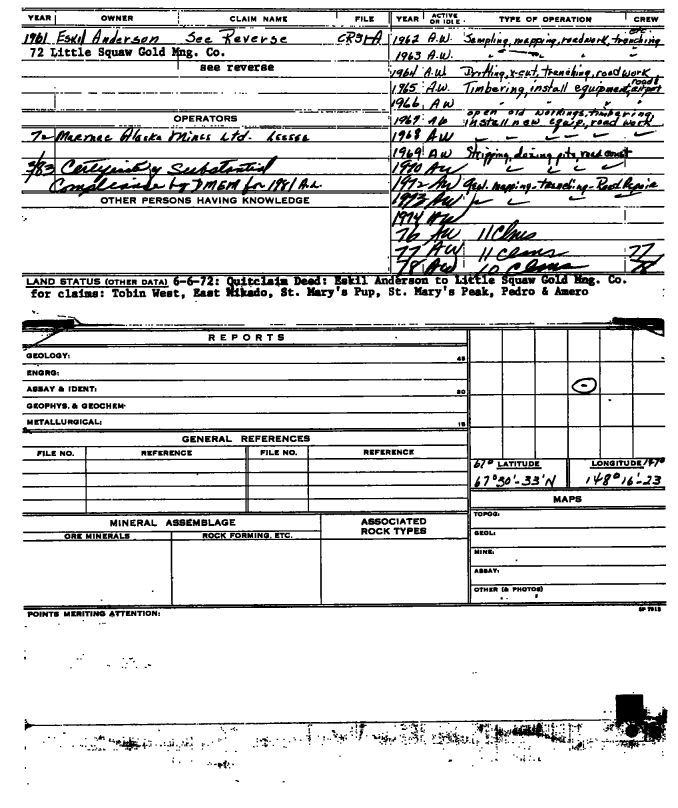 YEAR OWNER CLAIM NAME FILE
1961 Eskil Anderson See Reverse CR31-A
72 Little Squaw Gold Mng. Co.
see reverse
OPERATORS
72 Marmac Alaska Mines Ltd - Lessee
3/83 Certifying Substantial
Compliance by DMEM for 1981 A.L.
OTHER PERSONS HAVING KNOWLEDGE
YEAR ACTIVE OR IDLE TYPE OF OPERATION CREW
1962 A.W. Sampling, mapping, roadwork, trenching etc.
1963 A.W. " " "
1964 A.W. Drifting, x-cut, trenching, road work
1965 A.W. Timbering, install equipment, roads airport
1966 AW " "
1967 AW open old workings, timbering,
install new equip, road work
1968 AW " " "
1969 AW Stripping, dozing pits, road const
1970 AW " " "
1972 AW Geol. mapping-trenching-Road Repair
1973 AW " " "
1974 AW
76 AW 11 Clms
77 AW 11 Clms 77
78 AW 10 Clms 78
LAND STATUS (OTHER DATA) 6-6-72: Quitclaim Deed: Eskil Anderson to Little Squaw Gold Mng. Co.
for claims: Tobin West, East Mikado, St. Mary's Pup, St. Mary's Peak, Pedro & Amero
REPORTS
GEOLOGY: 45
ENGRG:
ASSAY & IDENT: 30
GEOPHYS. & GEOCHEM·
METALLURGICAL: 15
GENERAL REFERENCES
FILE NO. REFERENCE FILE NO. REFERENCE
67° LATITUDE LONGITUDE 147°
67°30'-33'N 148°16'-23
MAPS
TOPOG:
GEOL:
MINE:
ASSAY:
OTHER (& PHOTOS)
MINERAL ASSEMBLAGE ASSOCIATED
ROCK TYPES
ORE MINERALS ROCK FORMING, ETC.
POINTS MERITING ATTENTION: SP 7013